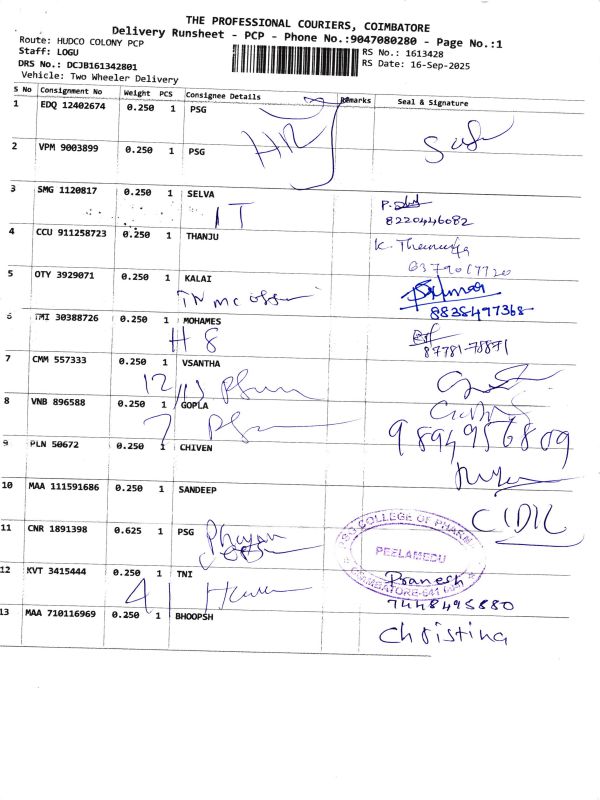 THE PROFESSIONAL COURIERS, COIMBATORE
Delivery Runsheet - PCP - Phone No.:9047080280 - Page No.:1
Route: HUDCO COLONY PCP
RS No.: 1613428
Staff: LOGU
RS Date: 16-Sep-2025
DRS No.: DCJB161342801
Vehicle: Two Wheeler Delivery
S No Consignment No Weight PCS Consignee Details Remarks Seal & Signature
1 EDQ 12402674 0.250 1 PSG
HR
2 VPM 9003899 0.250 1 PSG
3 SMG 1120817 0.250 1 SELVA
IT
8220446082
4 CCU 911258723 0.250 1 THANJU
5 OTY 3929071 0.250 1 KALAI
8838497368
6 TMI 30388726 0.250 1 MOHAMES
H 8
87781-78871
7 CMM 557333 0.250 1 VSANTHA
12
8 VNB 896588 0.250 1 GOPLA
7
9894956809
9 PLN 50672 0.250 1 CHIVEN
10 MAA 111591686 0.250 1 SANDEEP
11 CNR 1891398 0.625 1 PSG
PSG COLLEGE OF PHARM
PEELAMEDU
12 KVT 3415444 0.250 1 TNI
COIMBATORE-641 004
Pranesh
7448495880
41
13 MAA 710116969 0.250 1 BHOOPSH
Christina